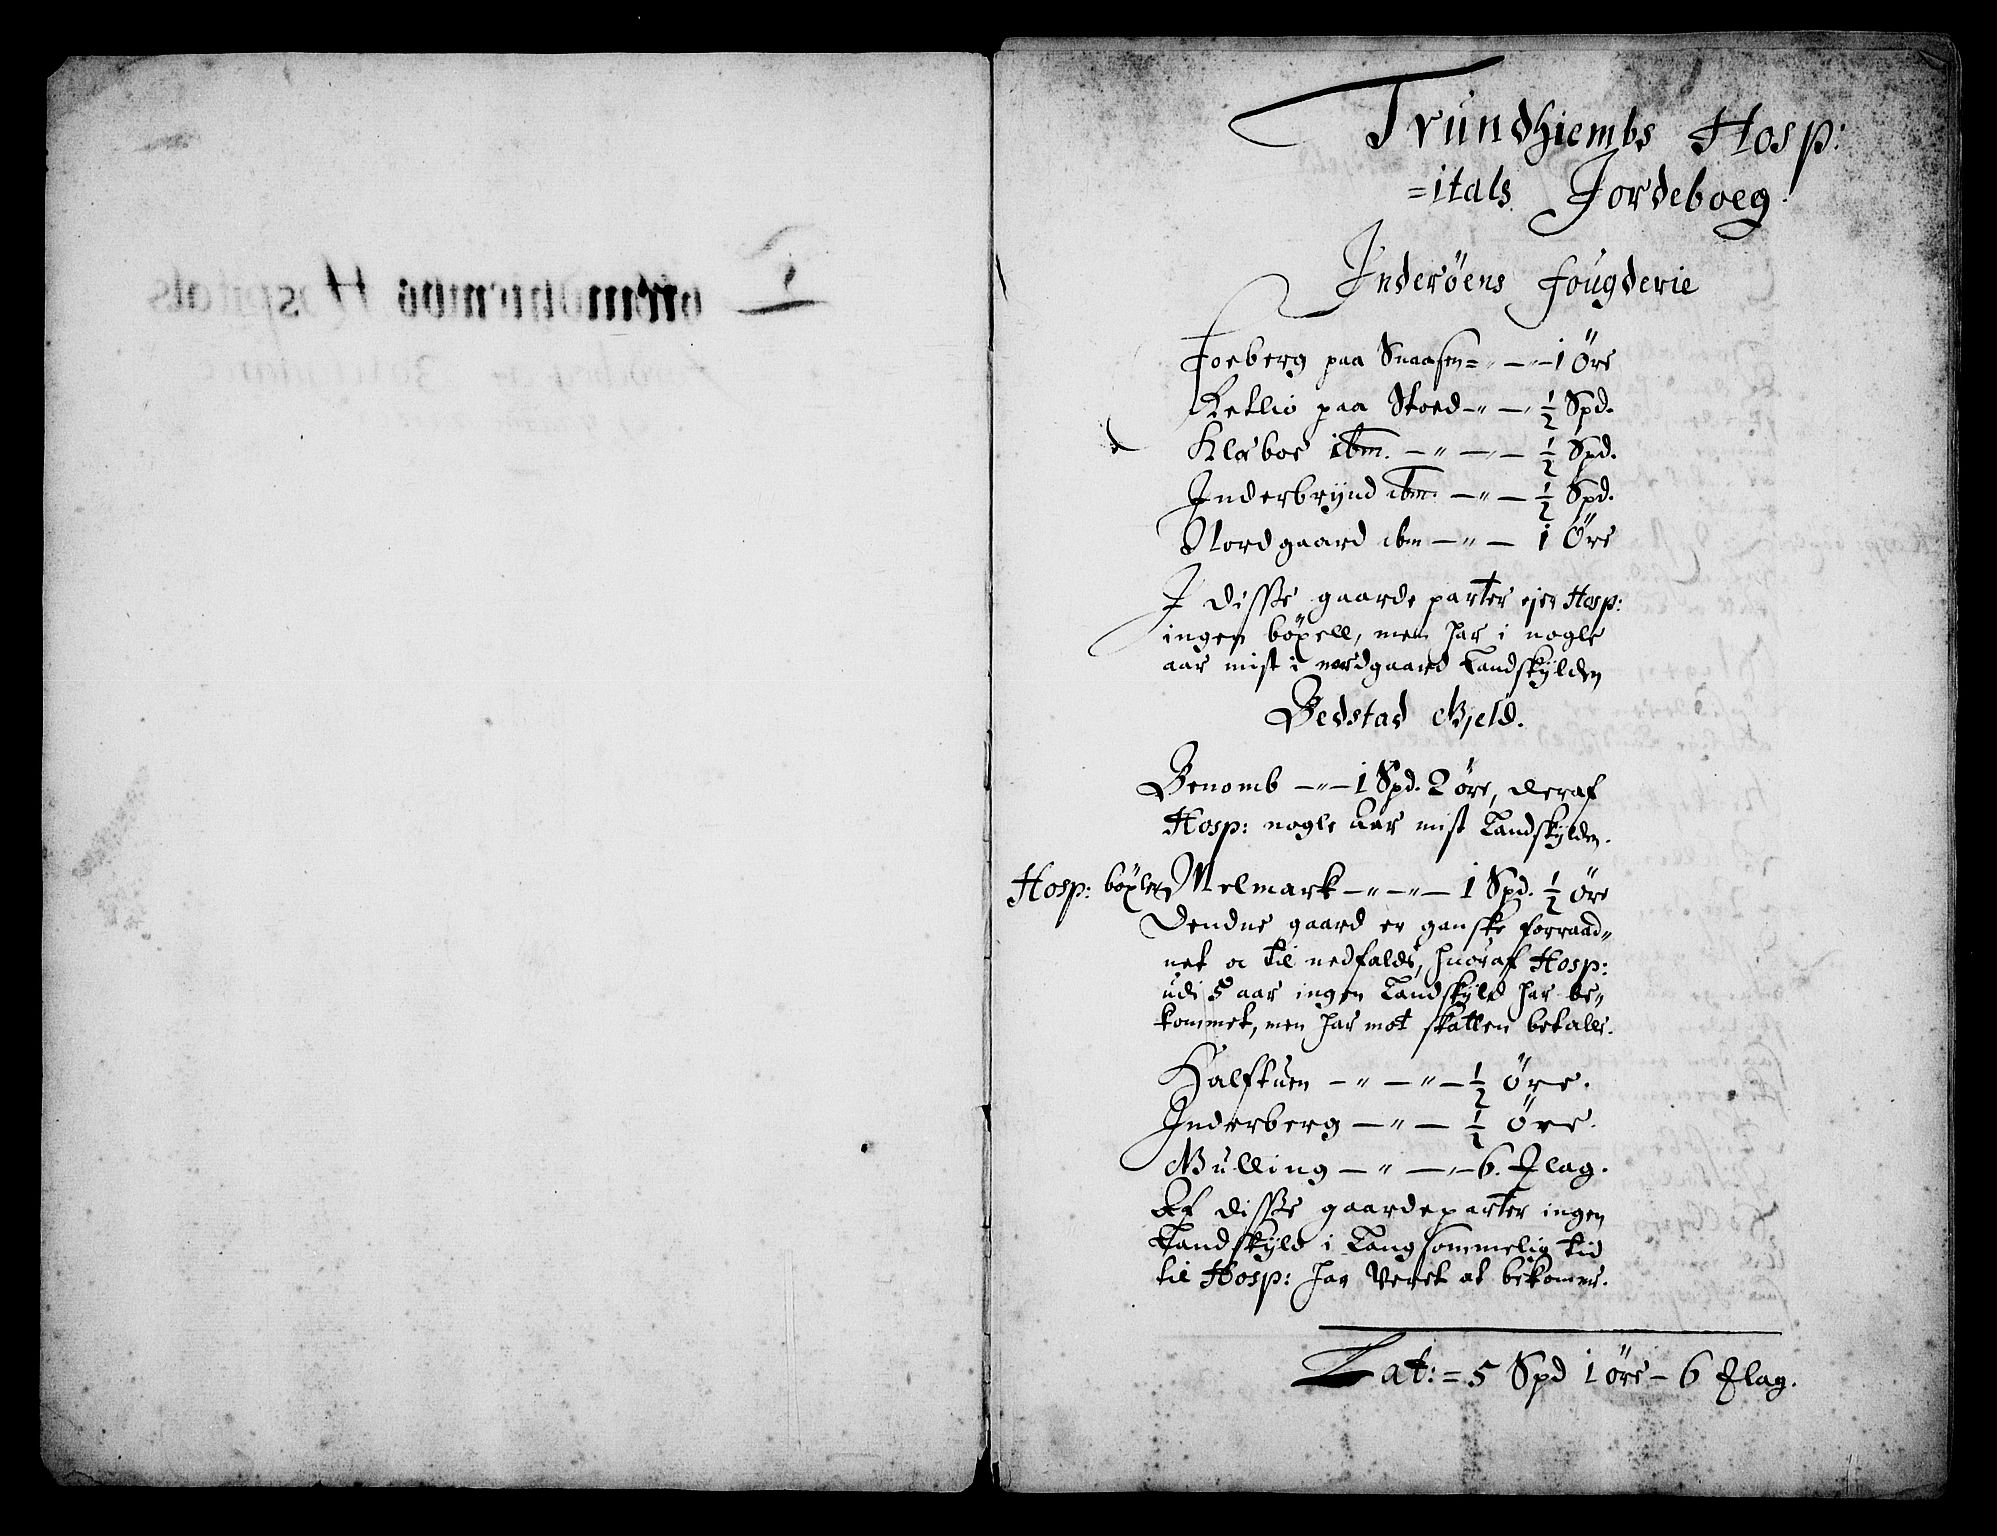 Trundhiembs Hosp:
=itals Jordeboeg.
Inderöens fougderie
Foeberg paa Snaasen = „ — „ — 1 Öre
Retlio paa Stoed — „ — „ ½ Spd.
Kleboe ibm. — „ — „ — ½ Spd.
Inderbrÿnd ibm. — „ — ½ Spd.
Nordgaard ibm — „ — 1 Öre
I disse gaarde parter ejer Hosp:
ingen böxell, men har i nogle
aar mist i nordgaard Landskÿlden
Bedstad Gjeld.
Benomb — „ — 1 Spd. 2 öre, deraf
Hosp: nogle aar mist Landskÿlden.
Hosp: böxler Melmark — „ — „ — 1 Spd. ½ öre
Dendne gaard er ganske forraad„
net oc til nedfalds, huoraf Hosp:
udi 5 aar ingen Landskÿld har be„
kommet, men har mot skatten betale.
Halftuen — „ — „ — ½ öre.
Inderberg — „ — ½ öre.
Bulling — „ — „ — 6. Flag.
Af disse gaardeparter ingen
Landskÿld i Langsommelig tid
til Hosp: har veret at bekomme.
Lat: = 5 Spd 1 öre — 6 Flag.